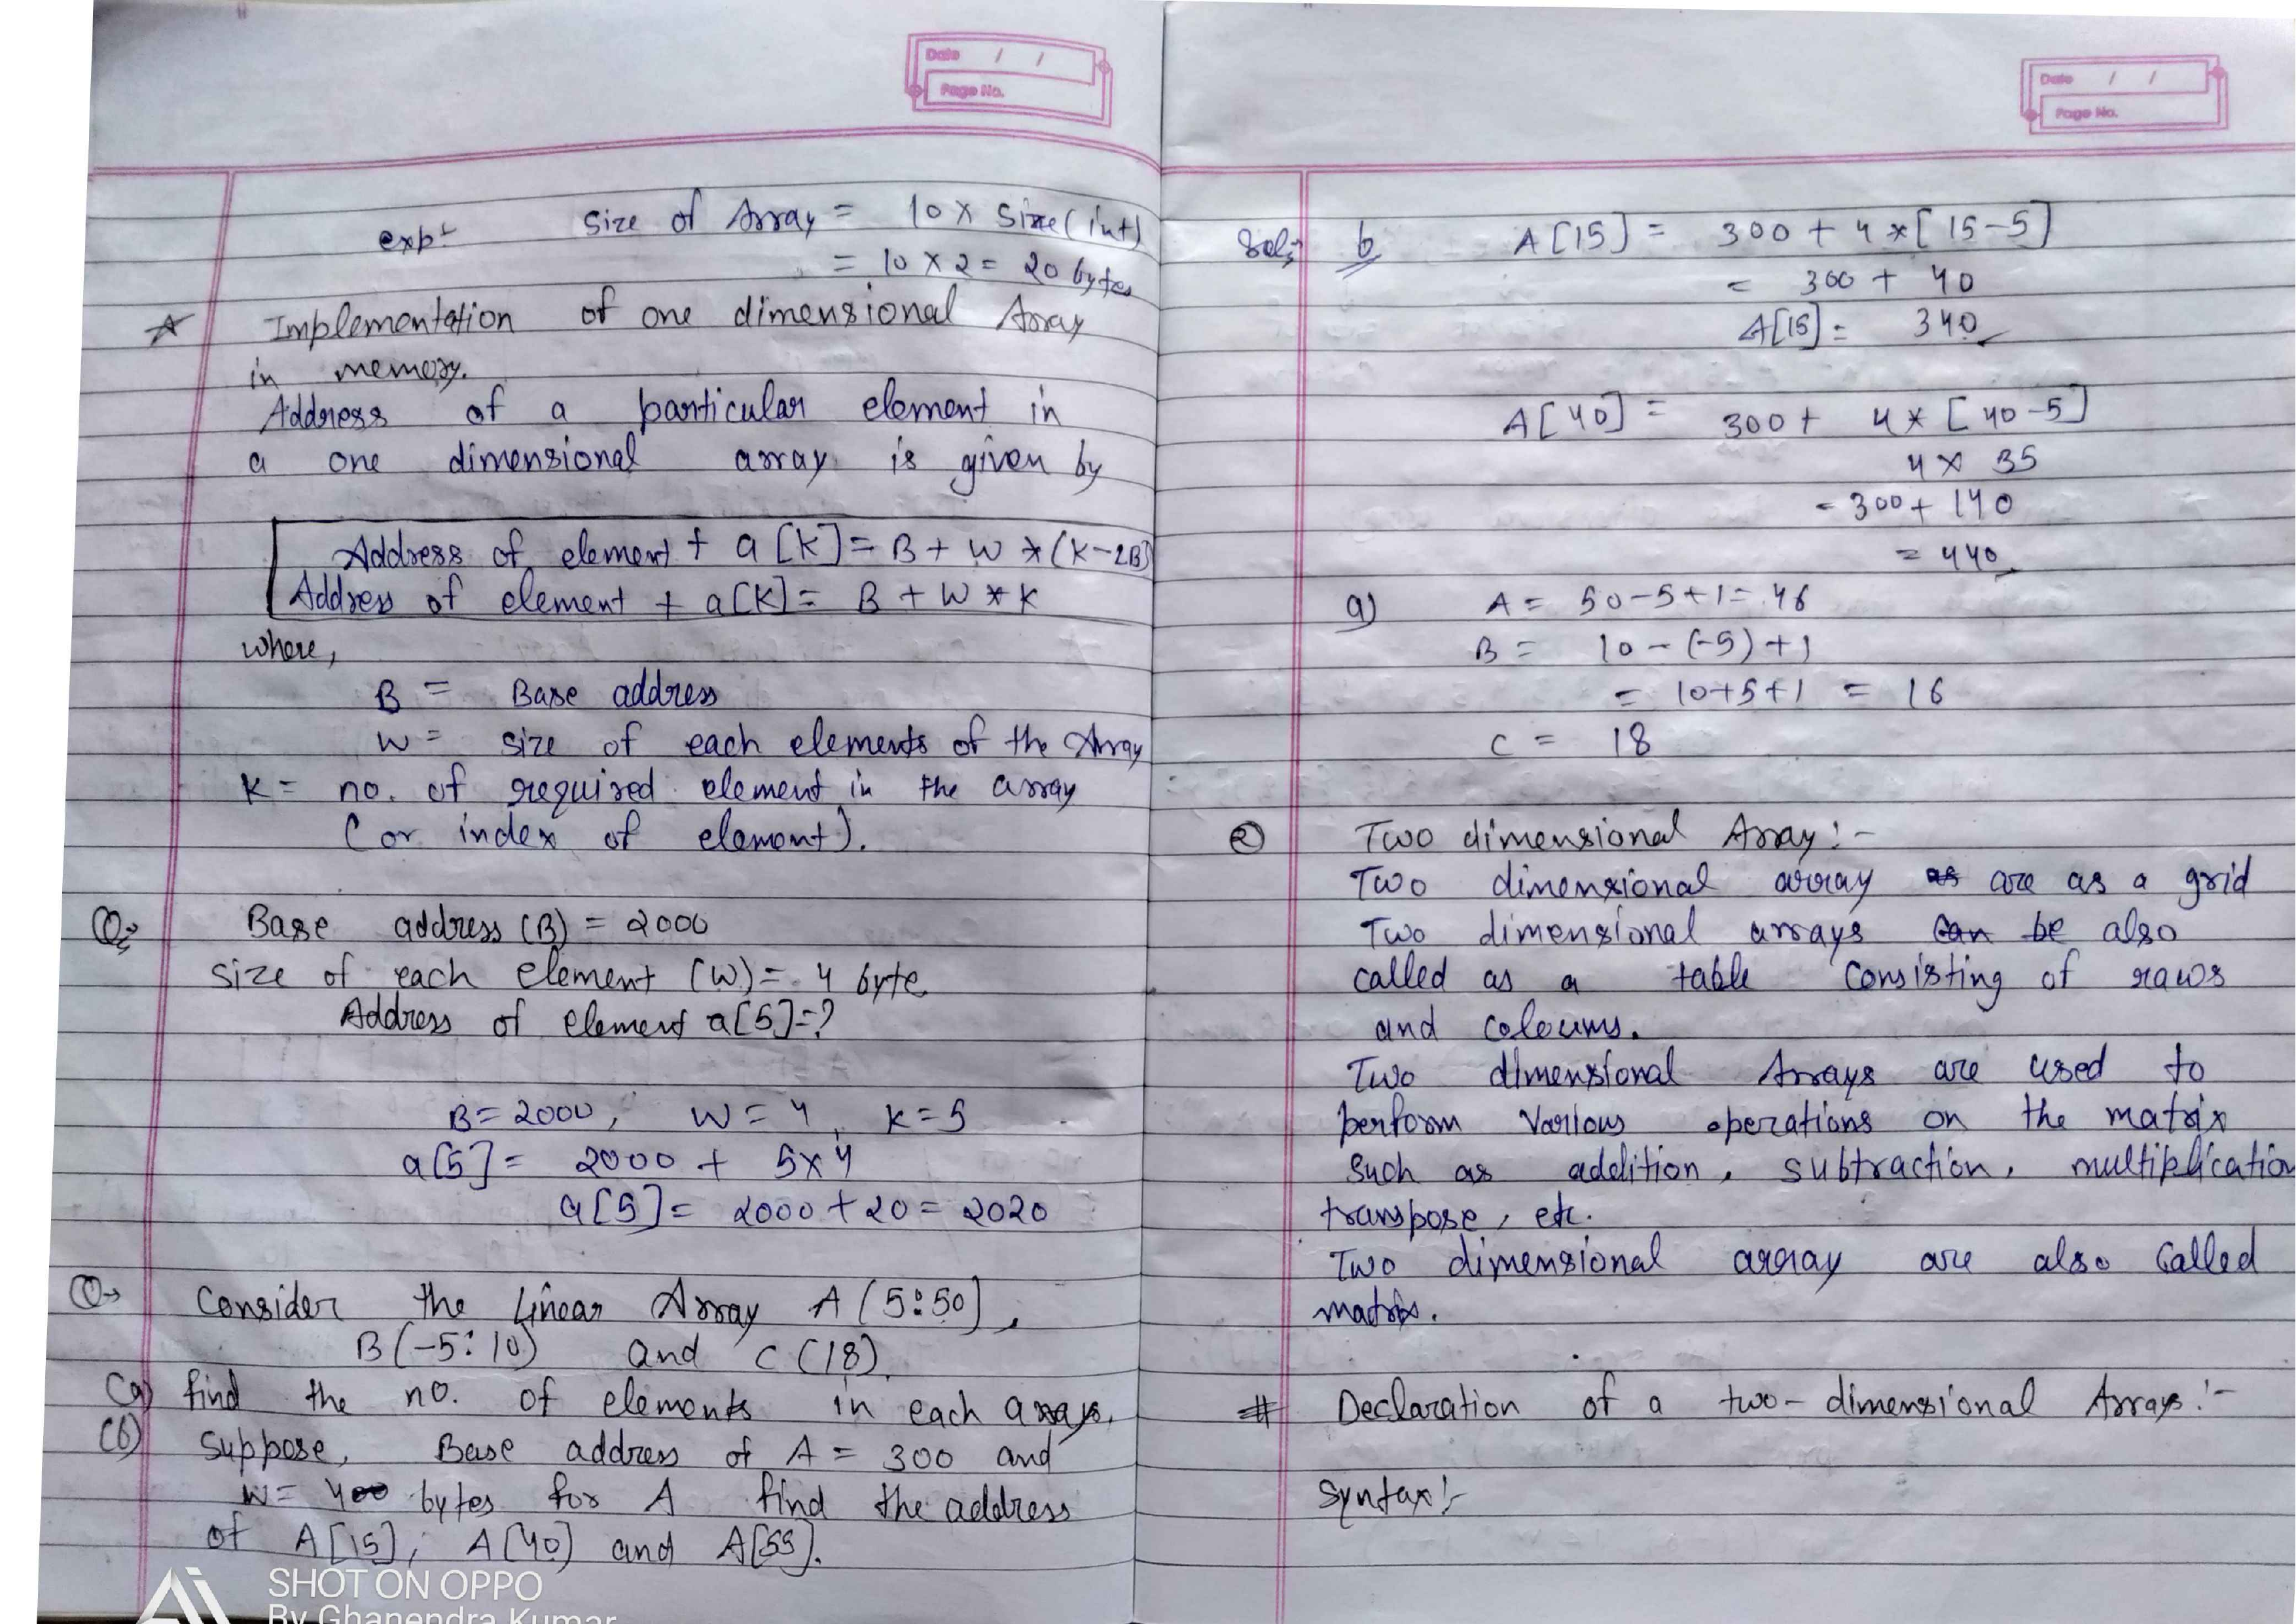 Date / /
Page No.
exp:- Size of Array = 10 × Size(int)
= 10 × 2 = 20 bytes
Implementation of one dimensional Array
in memory.
Address of a particular element in
a one dimensional array is given by
Address of element + a[K] = B + W * (K-LB)
Address of element + a[K] = B + W * K
where,
B = Base address
W = size of each elements of the Array
K = no. of required element in the array
(or index of element).
Q:
Base address (B) = 2000
size of each element (W) = 4 byte
Address of element a[5]=?
B=2000, W=4, K=5
a[5] = 2000 + 5×4
a[5] = 2000 + 20 = 2020
Q→ Consider the linear Array A(5:50],
B(-5:10) and C(18).
(a) find the no. of elements in each arrays.
(b) Suppose, Base address of A = 300 and
W= 400 bytes for A find the address
of A[15], A[40] and A[55].
SHOT ON OPPO
By Ghanendra Kumar
Date / /
Page No.
Sol: b A[15] = 300 + 4 * [15-5]
= 300 + 40
A[15] = 340
A[40] = 300 + 4 * [40-5]
4 × 35
= 300 + 140
= 440
a) A = 50-5+1 = 46
B = 10 - (-5) + 1
= 10+5+1 = 16
C = 18
② Two dimensional Array:-
Two dimensional array as are as a grid
Two dimensional arrays can be also
called as a table consisting of raws
and coloums.
Two dimensional Arrays are used to
perform various operations on the matrix
such as addition, subtraction, multiplication
transpose, etc.
Two dimensional array are also called
matrix.
# Declaration of a two-dimensional Arrays:-
Syntax:-